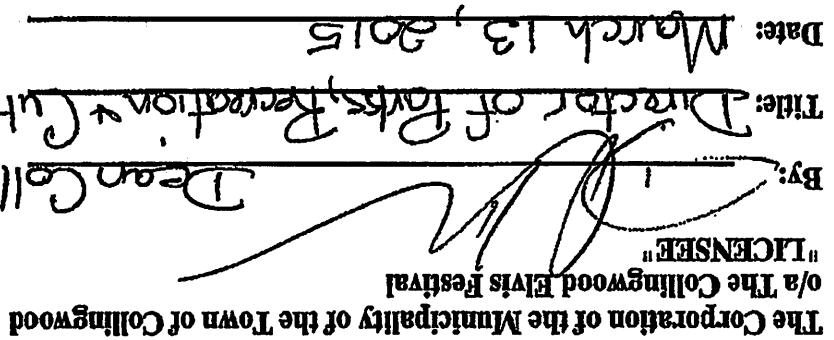 The Corporation of the Municipality of the Town of Collingwood
o/a The Collingwood Elvis Festival
"LICENSEE"
By: Dean Coll
Title: Director of Parks, Recreation & Cult
Date: March 13, 2015